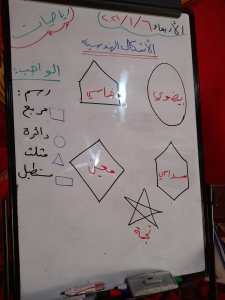 رياضيات
الأربعاء ٦/١/٢٠٢١
الأشكال الهندسية
خماسي
بيضوي
معين
سداسي
نجمة
الواجب:
رسم:
مربع
دائرة
مثلث
مستطيل